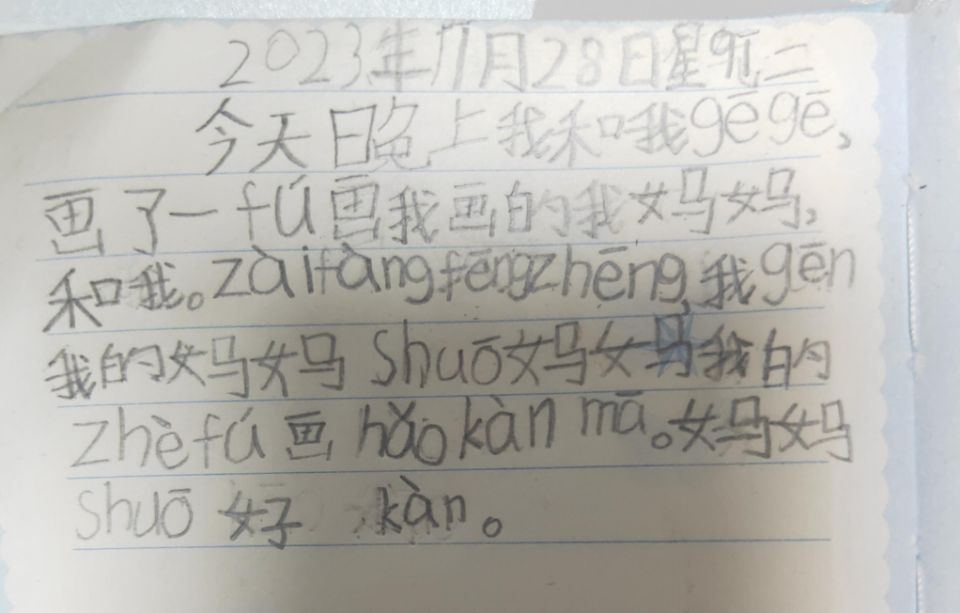 2023年11月28日星期二
今天晚上我和我gēgē,
画了一fú画我画的我妈妈,
和我。zàifàngfēngzhēng,我gēn
我的妈妈shuō妈妈我的
zhèfú画hǎokàn mā。妈妈
shuō好 kàn。